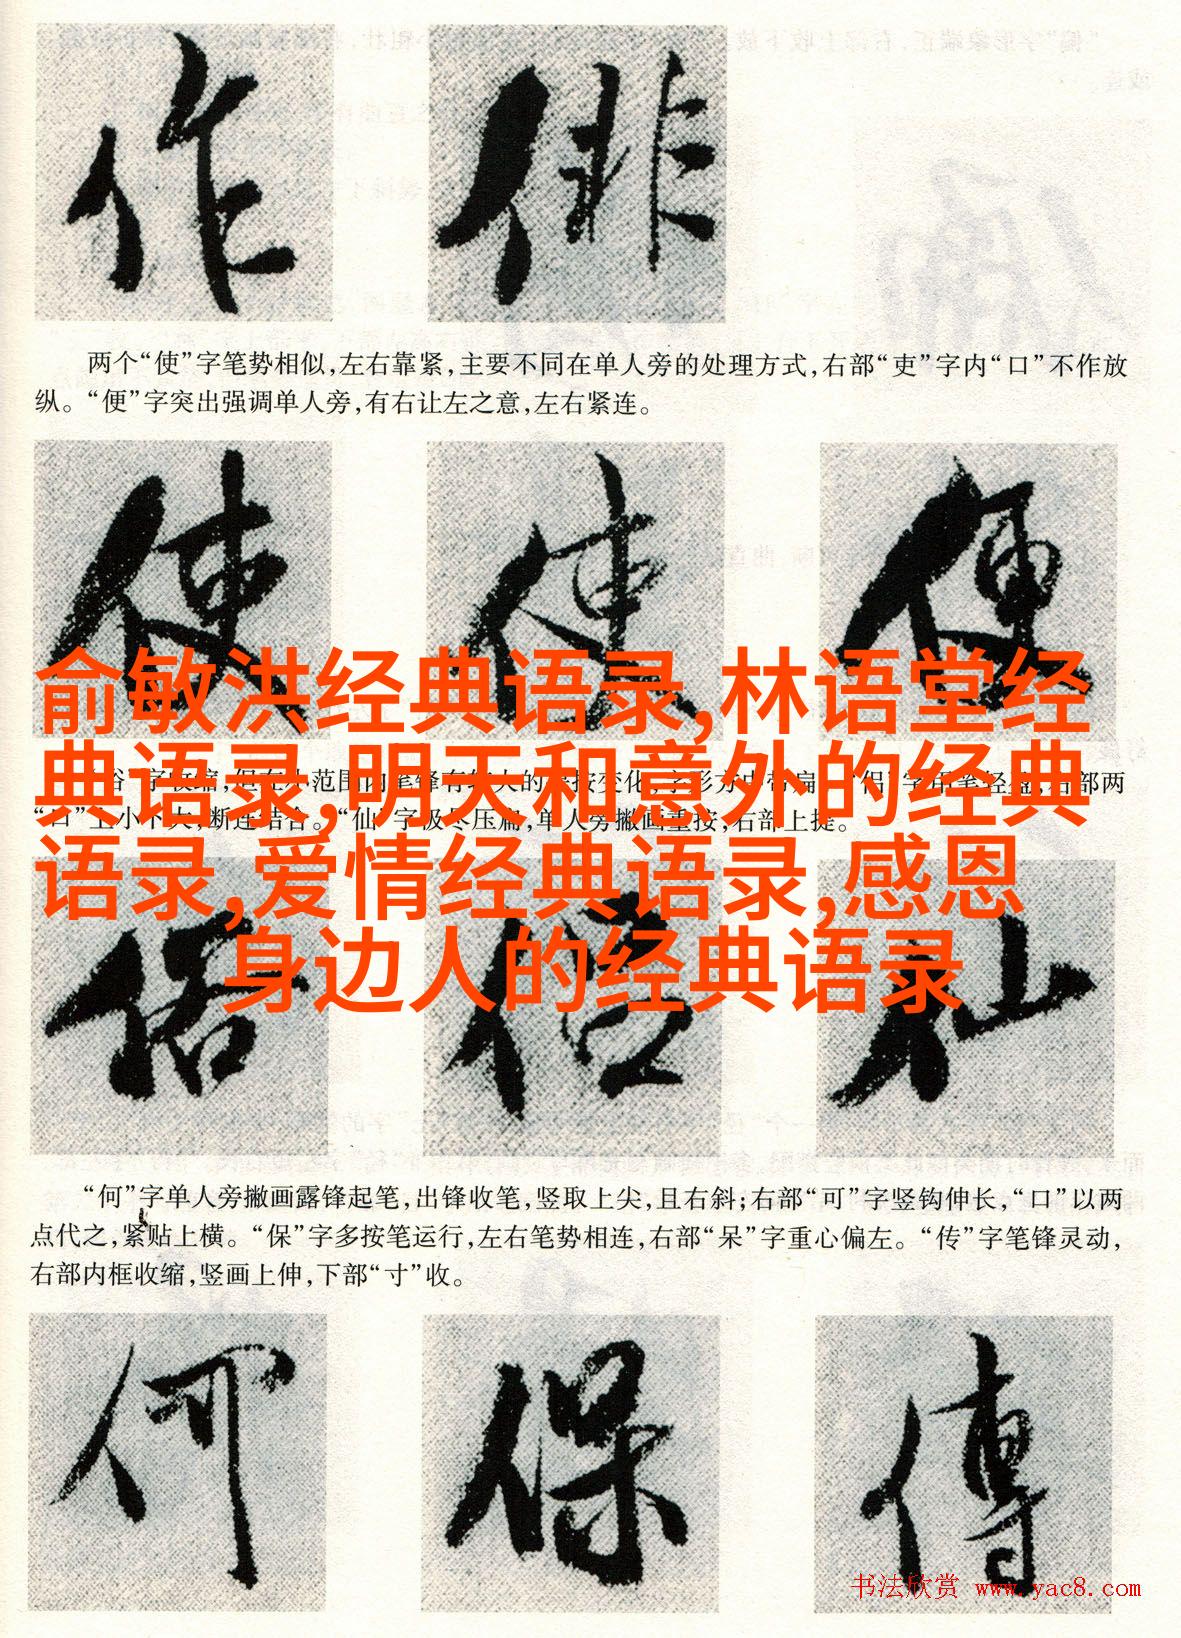 作 俳
两个“使”字笔势相似，左右靠紧，主要不同在单人旁的处理方式，右部“吏”字内“口”不作放
纵。“便”字突出强调单人旁，有右让左之意，左右紧连。
使 使 便
俞敏洪经典语录,林语堂经
典语录,明天和意外的经典
语录,爱情经典语录,感恩
身边人的经典语录
字收缩，但在小范围内笔锋有较大的 按变化，字形方中带扁。“侣”字用笔轻盈，右部两
“口”上小下大，断连结合。“仙”字极尽压扁，单人旁撇画重按，右部上提。
俗 侣 仙
“何”字单人旁撇画露锋起笔，出锋收笔，竖取上尖，且右斜；右部“可”字竖钩伸长，“口”以两
点代之，紧贴上横。“保”字多按笔运行，左右笔势相连，右部“呆”字重心偏左。“传”字笔锋灵动，
右部内框收缩，竖画上伸，下部“寸”收。
何 保 傳
书法欣赏 www.yac8.com